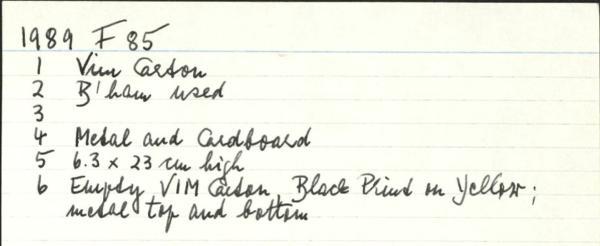 1989 F 85
1 Vim Carton
2 B'ham used
3
4 Metal and Cardboard
5 6.3 x 23 cm high
6 Empty VIM Carton, Black Print on Yellow;
metal top and bottom